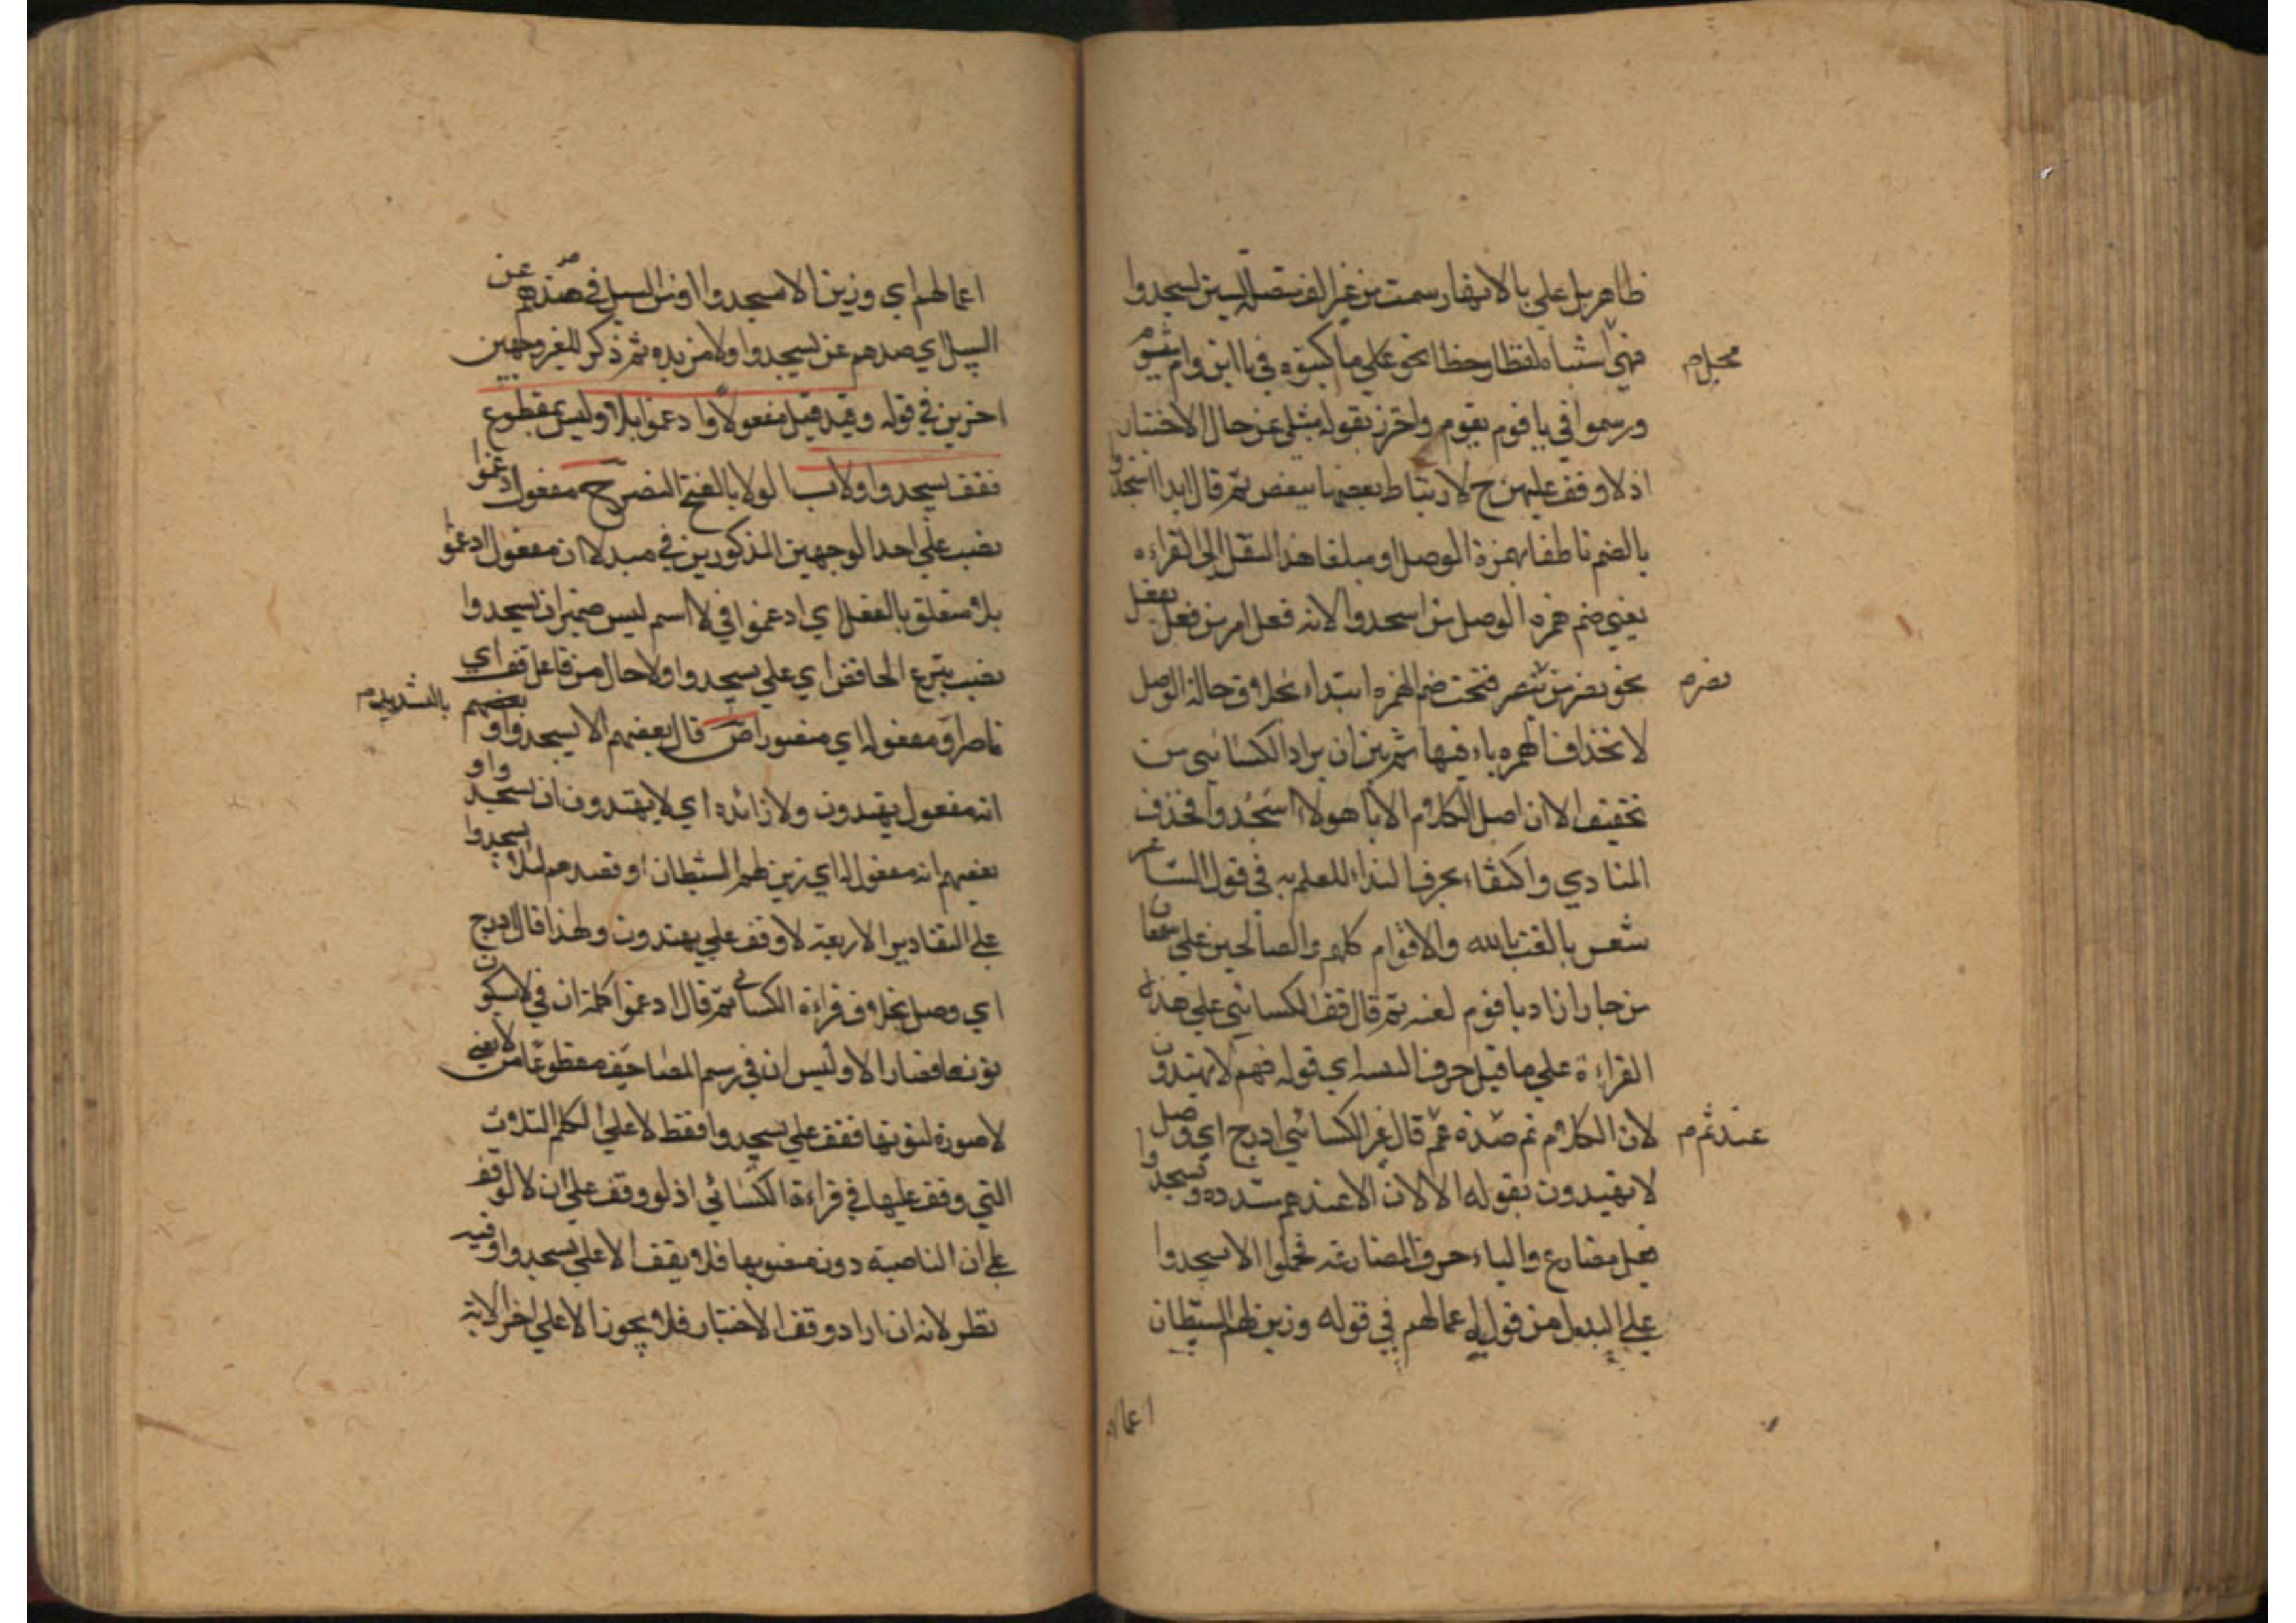 ظاهر بل علي يا لانها رسمت من غير الف متصلة بسين اسجدوا
فهي لفظا وخطا نحو علي ما كتبوه في يا ابن وام
محل م
ورسموا في يا قوم يقوم واحترز بقوله مثلي عن حال الاختبار
اذ لا وقف عليهن ح لارتباط بعضها ببعض ثم قال ابدا اسجدوا
بالضم ناطقا بهمزة الوصل او مبلغا هذا النقل الي القراءه
يعني ضم همزه الوصل من اسجدوا لانه فعل امر من فعل يفعل
نحو نصر من ينصر فتحت ضم الهمزه ابتداء بخلاف حالة الوصل
نصر م
لانحذاف الهمزه فيها ثم بين ان مراد الكسائي من
تخفيف الا ان اصل الكلام الا يا هولاء اسجدوا فحذف
المنادي واكتفاء بحرف النداء للعلم به في قول الشاعر
شعر يا لعنة الله والاقوام كلهم والصالحين علي سمعان
من جار اراد يا قوم لعنة ثم قال قف للكسائي علي هذه
القراءة علي ما قبل حرف اي قوله فهم لا يهتدون
لان الكلام تم عنده ثم قال غير الكسائي ادرج اي وصل
عند ثم م
لا يهتدون بقوله الا لان الا عندهم مشدده ويسجدوا
فعل مضارع والياء حرف المضارعة فحملوا الا يسجدوا
علي البدل من قوله اعمالهم في قوله وزين لهم الشيطان
اعمالهم
اعمالهم اي وزين الا يسجدوا او من السبيل في فصدهم عن
السبيل اي صدهم عن يسجدوا ولا مزيده ثم ذكر للغير وجهين
اخرين في قوله وقد قيل مفعولا وا دغموا بلا وليس بمقطوع
فقف يسجدوا ولا الولا بالفتح النصر ح مفعول ادغموا
نصب علي احد الوجهين المذكورين في مبدلا ان مفعول ادغموا
بلا متعلق بالفعل اي ادغموا في لا اسم ليس ضمير ان يسجدوا
نصب بنزع الخافض اي علي يسجدوا ولا حال من فاعل قف اي
ناصرا ومفعوله اي منصورا ص قال بعضهم الا يسجدوا
بالتشديد م
انه مفعول يهتدون ولا زائده اي لا يهتدون ان يسجدوا
بعضهم انه مفعول له اي زين لهم الشيطان او فصدهم لئلا يسجدوا
علي التقادير الاربعة لا وقف علي يهتدون ولهذا قال ادرج
اي وصل بخلاف قراءة الكسائي ثم قال ادغموا كلمة ان في لا سكون
نونها فصار الا وليس ان في رسم المصاحف مقطوعا من لا يعني
لا صورة لنونها فقف علي يسجدوا فقط لا علي الكلم الثلاث
التي وقف عليها في قراءة الكسائي اذ لو وقف علي ان لا لوقف
علي ان الناصبة دون منصوبها فلا يقف الا علي يسجدوا وفيه
نظر لانه ان اراد وقف الاختبار فلا يجوز الا علي اخر الاية